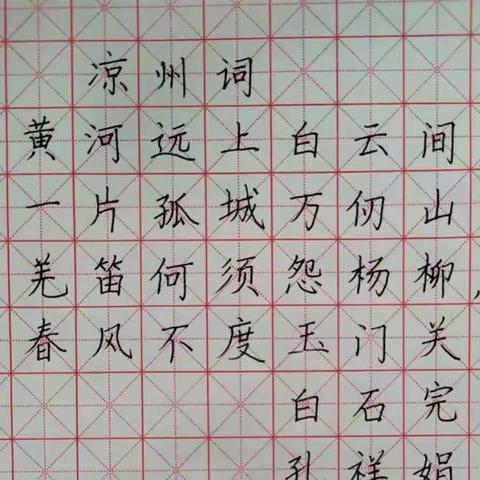 凉州词
黄河远上白云间
一片孤城万仞山
羌笛何须怨杨柳，
春风不度玉门关
白石完
孔祥娟